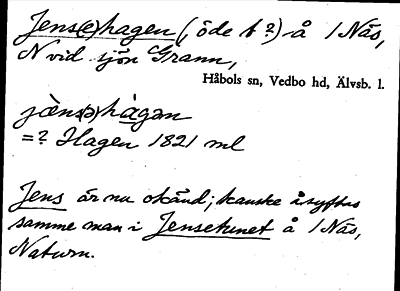 Jens(e)hagen (, öde t ?) å 1 Näs,
N vid sjön Grann,
Håbols sn, Vedbo hd, Älvsb. l.
jæ̀ns(ə)hàgən
=? Hagen 1821 ml
Jens är nu okänd; kanske åsyftas
samme man i Jensetunet å 1 Näs,
Naturn.